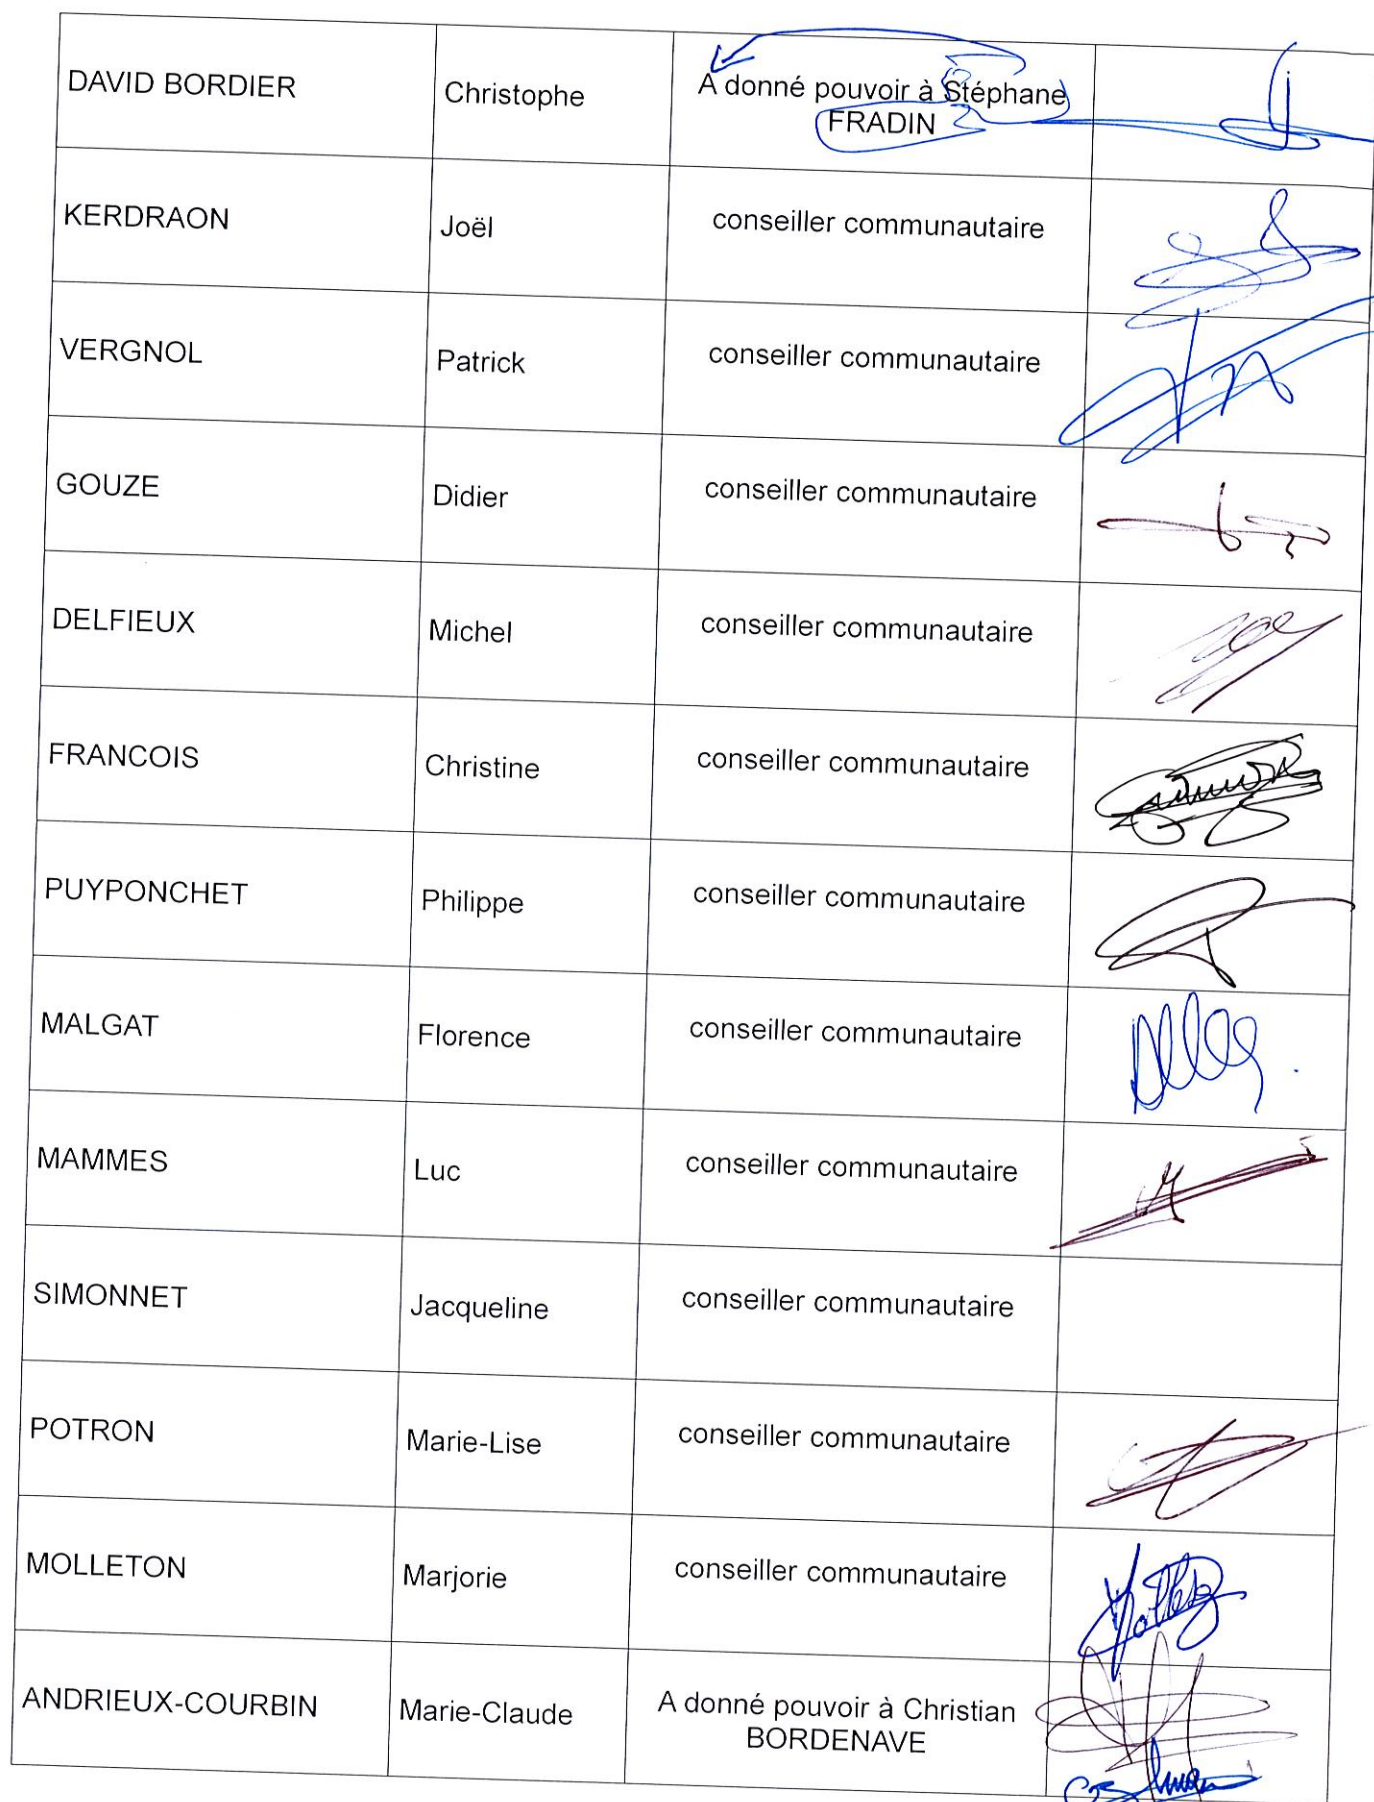 DAVID BORDIER Christophe A donné pouvoir à Stéphane
FRADIN
KERDRAON Joël conseiller communautaire
VERGNOL Patrick conseiller communautaire
GOUZE Didier conseiller communautaire
DELFIEUX Michel conseiller communautaire
FRANCOIS Christine conseiller communautaire
PUYPONCHET Philippe conseiller communautaire
MALGAT Florence conseiller communautaire
MAMMES Luc conseiller communautaire
SIMONNET Jacqueline conseiller communautaire
POTRON Marie-Lise conseiller communautaire
MOLLETON Marjorie conseiller communautaire
ANDRIEUX-COURBIN Marie-Claude A donné pouvoir à Christian
BORDENAVE